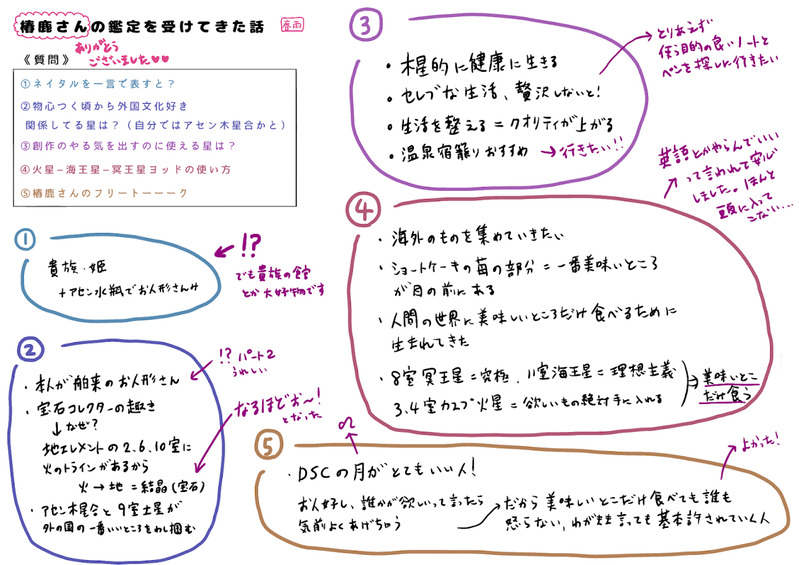 椿鹿さんの鑑定を受けてきた話
春雨
《質問》
ありがとう
ございました♥♥
①ネイタルを一言で表すと？
②物心つく頃から外国文化好き
関係してる星は？（自分ではアセン木星合かと）
③創作のやる気を出すのに使える星は？
④火星−海王星−冥王星ヨッドの使い方
⑤椿鹿さんのフリートーーーク
①
貴族・姫
+アセン水瓶でお人形さんみ
!?
でも貴族の館
とか大好物です
②
・本人が舶来のお人形さん
!? パート2
うれしい
・宝石コレクターの趣き
↓なぜ？
地エレメントの2.6.10室に
火のトラインがあるから
火→地=結晶(宝石)
なるほどぉ〜!
となった
・アセン木星合と9室土星が
外の国の一番いいところをわし掴む
③
・木星的に健康に生きる
・セレブな生活、贅沢しないと!
・生活を整える=クオリティが上がる
・温泉宿籠りおすすめ →行きたい!!
とりあえず
使う目的の良いノートと
ペンを探しに行きたい
④
・海外のものを集めていきたい
・ショートケーキの苺の部分=一番美味いところ
が目の前にある
・人間の世界に美味しいところだけ食べるために
生まれてきた
・8室冥王星=究極、11室海王星=理想主義
3.4室カスプ火星=欲しいもの絶対手に入れる
→美味いとこ
だけ食う
英語とかやらんでいい
って言われて安心
しました。ほんと
頭に入って
こない…
⑤
・DSCの月がとてもいい人!
♌
お人好し、誰かが欲しいって言ったら
気前よくあげちゃう
→だから美味しいとこだけ食べても誰も
怒らない、わがまま言っても基本許されていく人
よかった!